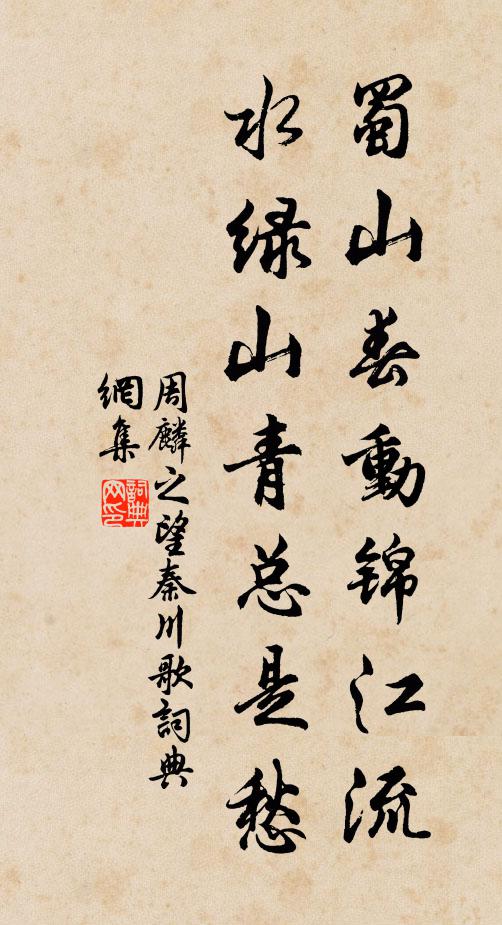 蜀山春動錦江流
水绿山青总是愁
周麟之望秦川歌詞典
網集
詞典
网印